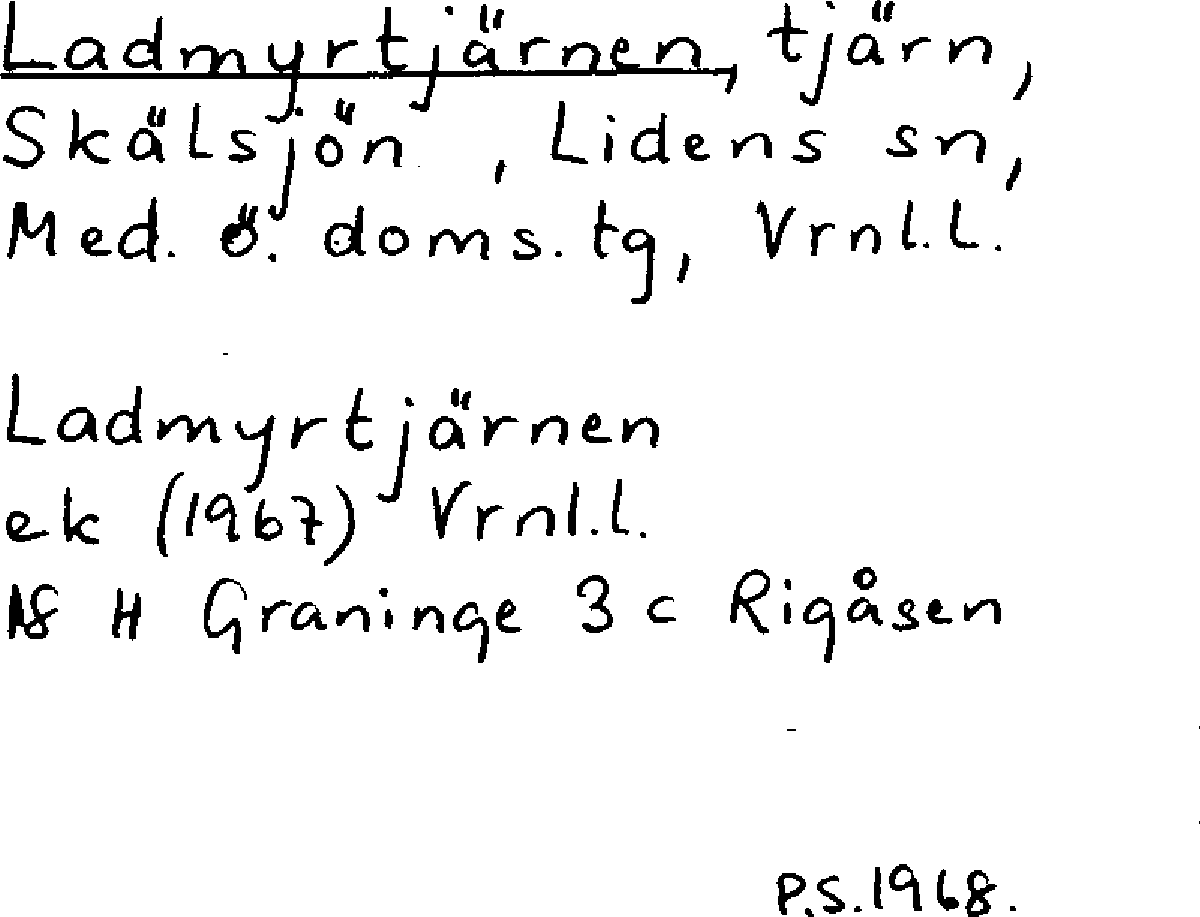 Ladmyrtjärnen, tjärn,
Skälsjön, Lidens sn,
Med. ö. doms.tg, Vrnl.l.
Ladmyrtjärnen
ek (1967) Vrnl.l.
18 H Graninge 3 c Rigåsen
P.S.1968.